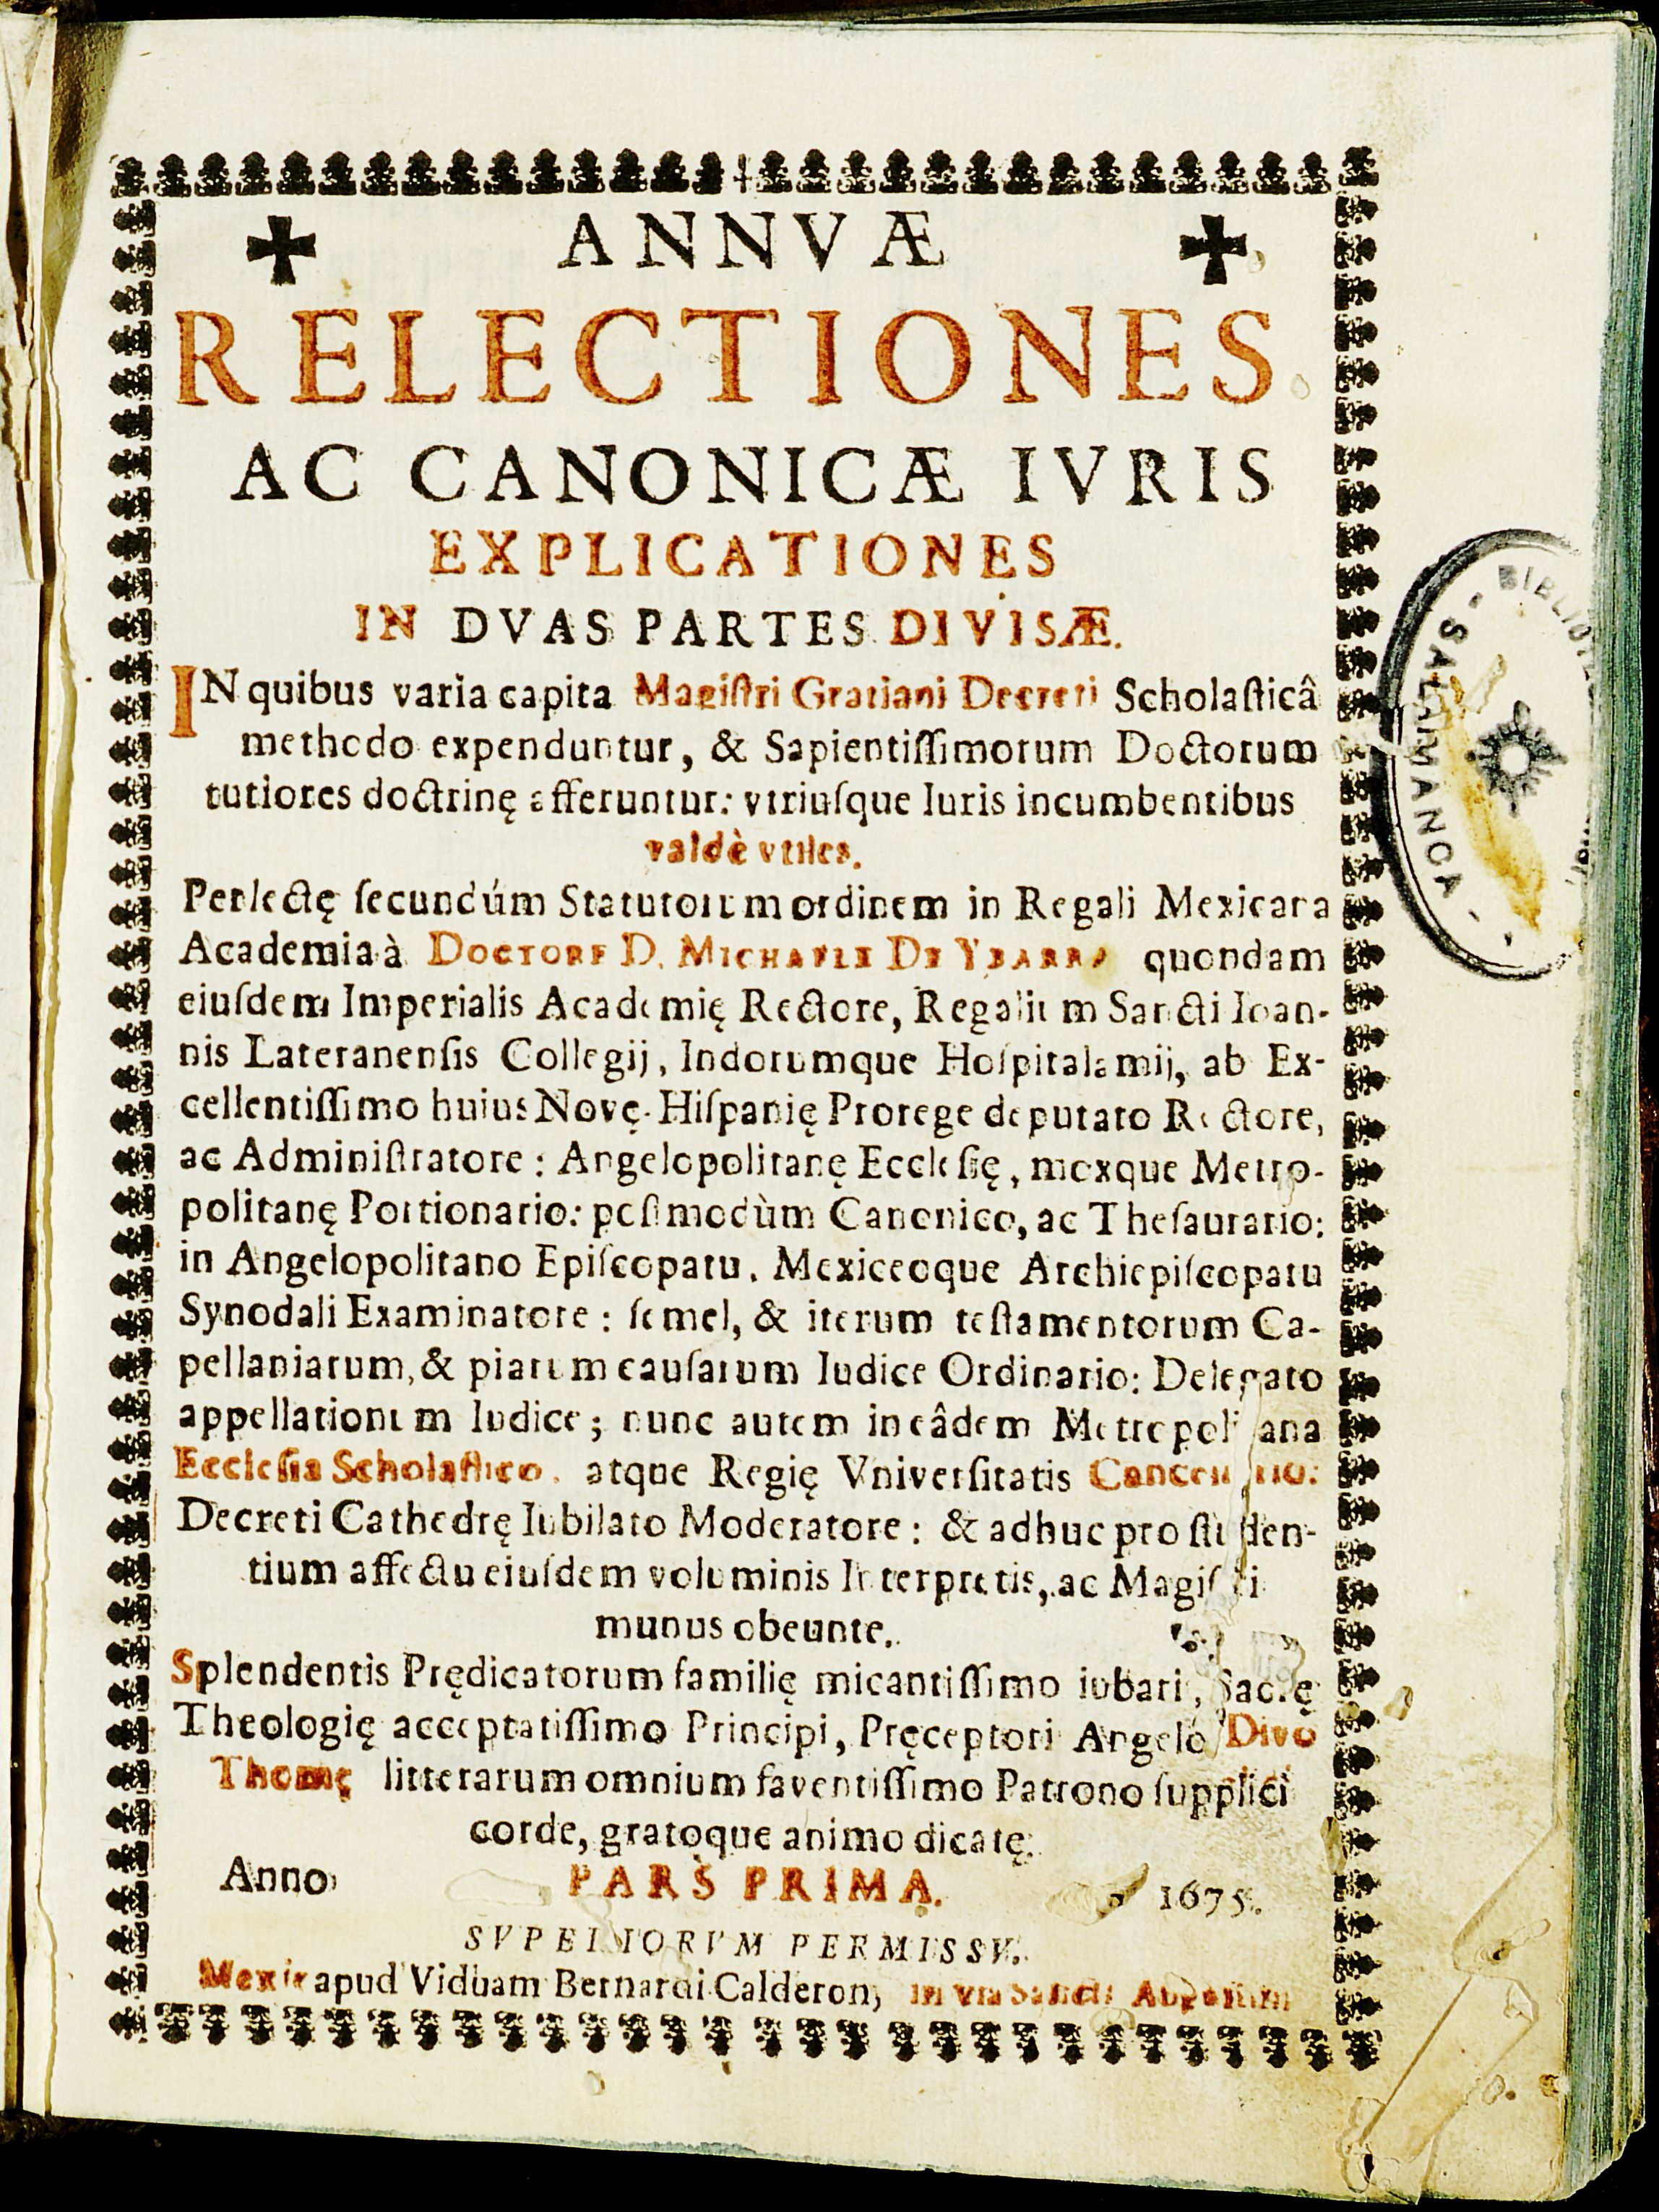 ANNVÆ
RELECTIONES
AC CANONICÆ IVRIS
EXPLICATIONES
IN DVAS PARTES DIVISÆ.
IN quibus varia capita Magiſtri Gratiani Decreti Scholaſticâ
methodo expenduntur, & Sapientiſſimorum Doctorum
tutiores doctrinę afferuntur: vtriuſque Iuris incumbentibus
valdè vtiles.
Perlectę ſecundúm Statutorum ordinem in Regali Mexicana
Academia à DOCTORE D. MICHAELE DE YBARRA quondam
eiuſdem Imperialis Academię Rectore, Regalium Sancti Ioan-
nis Lateranenſis Collegij, Indorumque Hoſpitalamij, ab Ex-
cellentiſſimo huius Novę Hiſpanię Prorege deputato Rectore,
ac Adminiſtratore: Angelopolitanę Eccleſię, moxque Metro-
politanę Portionario: poſtmodùm Canonico, ac Theſaurario:
in Angelopolitano Epiſcopatu, Mexiceoque Archiepiſcopatu
Synodali Examinatore: ſemel, & iterum teſtamentorum Ca-
pellaniarum, & piarum cauſarum Iudice Ordinario: Delegato
appellationum Iudice; nunc autem in eâdem Metropolitana
Eccleſia Scholaſtico, atque Regię Vniverſitatis Cancellario:
Decreti Cathedrę Iubilato Moderatore: & adhuc pro ſtuden-
tium affectu eiuſdem voluminis Interpretis, ac Magiſtri
munus obeunte.
Splendentis Prędicatorum familię micantiſſimo iubari, Sacrę
Theologię acceptatiſſimo Principi, Pręceptori Angelo Divo
Thomę litterarum omnium faventiſſimo Patrono ſupplici
corde, gratoque animo dicatę.
Anno PARS PRIMA. 1675.
SVPERIORVM PERMISSV.
Mexici apud Viduam Bernardi Calderon, in via Sancti Auguſtini
SALAMANCA